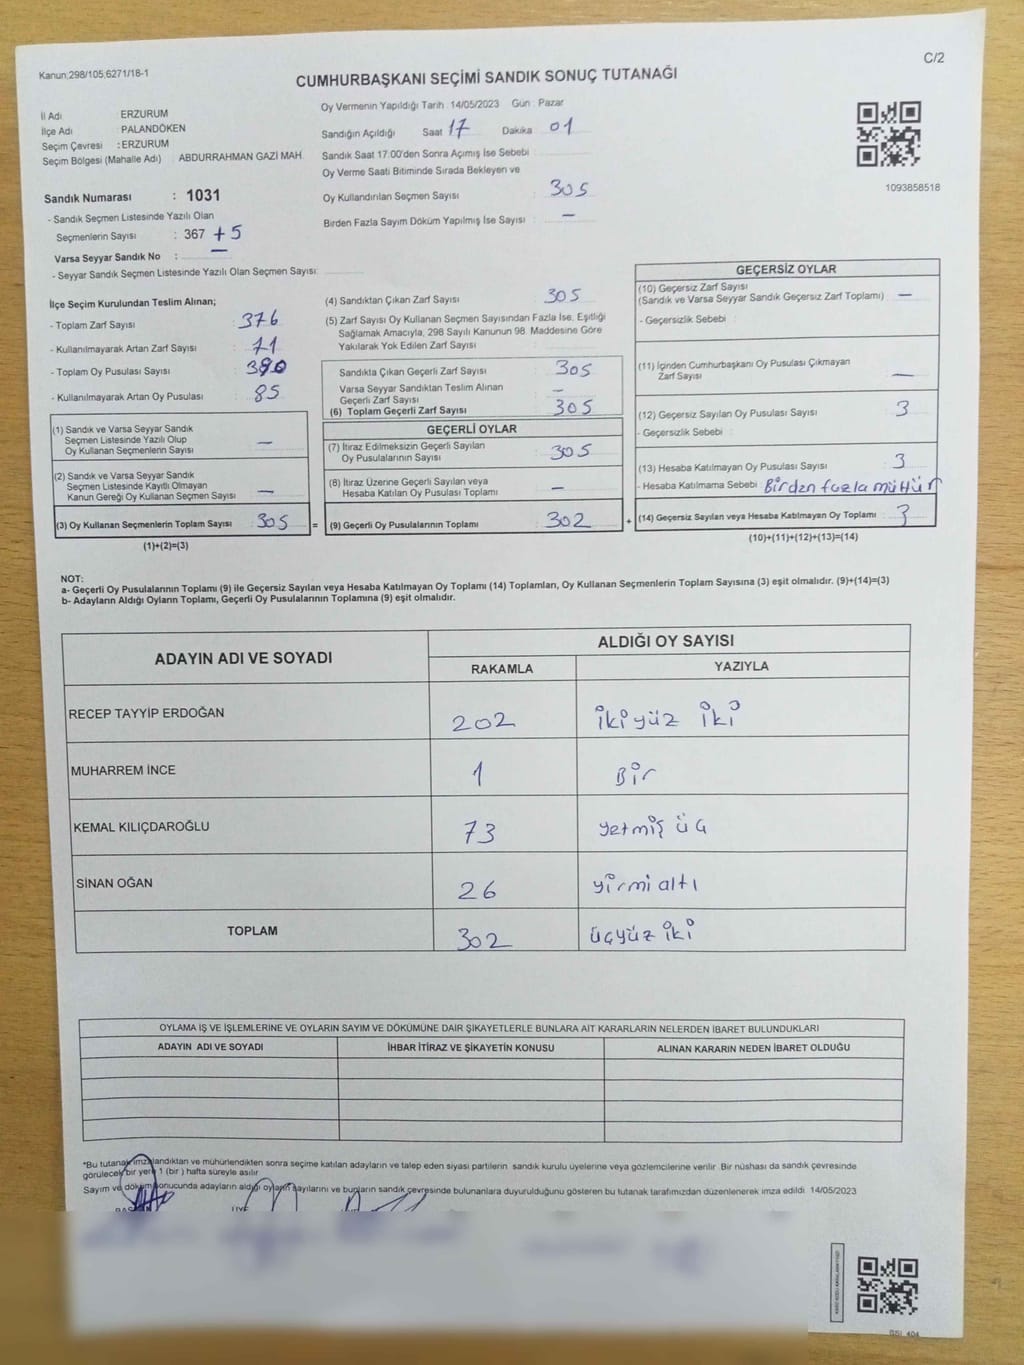 Kanun;298/105;6271/18-1
C/2
CUMHURBAŞKANI SEÇİMİ SANDIK SONUÇ TUTANAĞI
İl Adı : ERZURUM
İlçe Adı : PALANDÖKEN
Seçim Çevresi : ERZURUM
Seçim Bölgesi (Mahalle Adı) : ABDURRAHMAN GAZİ MAH.
Sandık Numarası : 1031
- Sandık Seçmen Listesinde Yazılı Olan
Seçmenlerin Sayısı : 367 +5
Varsa Seyyar Sandık No : —
- Seyyar Sandık Seçmen Listesinde Yazılı Olan Seçmen Sayısı:
Oy Vermenin Yapıldığı Tarih : 14/05/2023 Gün : Pazar
Sandığın Açıldığı Saat 17 Dakika 01
Sandık Saat 17:00'den Sonra Açmış İse Sebebi :
Oy Verme Saati Bitiminde Sırada Bekleyen ve
Oy Kullandırılan Seçmen Sayısı : 305
Birden Fazla Sayım Döküm Yapılmış İse Sayısı : —
1093858518
İlçe Seçim Kurulundan Teslim Alınan;
- Toplam Zarf Sayısı : 376
- Kullanılmayarak Artan Zarf Sayısı : 71
- Toplam Oy Pusulası Sayısı : 390
- Kullanılmayarak Artan Oy Pusulası : 85
(1) Sandık ve Varsa Seyyar Sandık
Seçmen Listesinde Yazılı Olup
Oy Kullanan Seçmenlerin Sayısı : —
(2) Sandık ve Varsa Seyyar Sandık
Seçmen Listesinde Kayıtlı Olmayan
Kanun Gereği Oy Kullanan Seçmen Sayısı : —
(3) Oy Kullanan Seçmenlerin Toplam Sayısı : 305 =
(1)+(2)=(3)
(4) Sandıktan Çıkan Zarf Sayısı : 305
(5) Zarf Sayısı Oy Kullanan Seçmen Sayısından Fazla İse, Eşitliği
Sağlamak Amacıyla, 298 Sayılı Kanunun 98. Maddesine Göre
Yakılarak Yok Edilen Zarf Sayısı :
Sandıkta Çıkan Geçerli Zarf Sayısı : 305
Varsa Seyyar Sandıktan Teslim Alınan
Geçerli Zarf Sayısı : —
(6) Toplam Geçerli Zarf Sayısı : 305
GEÇERLİ OYLAR
(7) İtiraz Edilmeksizin Geçerli Sayılan
Oy Pusulalarının Sayısı : 305
(8) İtiraz Üzerine Geçerli Sayılan veya
Hesaba Katılan Oy Pusulası Toplamı : —
(9) Geçerli Oy Pusulalarının Toplamı : 302 +
GEÇERSİZ OYLAR
(10) Geçersiz Zarf Sayısı
(Sandık ve Varsa Seyyar Sandık Geçersiz Zarf Toplamı) : —
- Geçersizlik Sebebi :
(11) İçinden Cumhurbaşkanı Oy Pusulası Çıkmayan
Zarf Sayısı : —
(12) Geçersiz Sayılan Oy Pusulası Sayısı : 3
- Geçersizlik Sebebi :
(13) Hesaba Katılmayan Oy Pusulası Sayısı : 3
- Hesaba Katılmama Sebebi : Birden fazla mühür
(14) Geçersiz Sayılan veya Hesaba Katılmayan Oy Toplamı : 3
(10)+(11)+(12)+(13)=(14)
NOT:
a- Geçerli Oy Pusulalarının Toplamı (9) ile Geçersiz Sayılan veya Hesaba Katılmayan Oy Toplamı (14) Toplamları, Oy Kullanan Seçmenlerin Toplam Sayısına (3) eşit olmalıdır. (9)+(14)=(3)
b- Adayların Aldığı Oyların Toplamı, Geçerli Oy Pusulalarının Toplamına (9) eşit olmalıdır.
ADAYIN ADI VE SOYADI ALDIĞI OY SAYISI
RAKAMLA YAZIYLA
RECEP TAYYİP ERDOĞAN 202 ikiyüz iki
MUHARREM İNCE 1 Bir
KEMAL KILIÇDAROĞLU 73 yetmiş üç
SİNAN OĞAN 26 yirmi altı
TOPLAM 302 üçyüz iki
OYLAMA İŞ VE İŞLEMLERİNE VE OYLARIN SAYIM VE DÖKÜMÜNE DAİR ŞİKAYETLERLE BUNLARA AİT KARARLARIN NELERDEN İBARET BULUNDUKLARI
ADAYIN ADI VE SOYADI İHBAR İTİRAZ VE ŞİKAYETİN KONUSU ALINAN KARARIN NEDEN İBARET OLDUĞU
*Bu tutanak imzalandıktan ve mühürlendikten sonra seçime katılan adayların ve talep eden siyasi partilerin sandık kurulu üyelerine veya gözlemcilerine verilir. Bir nüshası da sandık çevresinde
görülecek bir yere 1 (bir) hafta süreyle asılır.
Sayım ve döküm sonucunda adayların aldığı oyların sayılarını ve bunların sandık çevresinde bulunanlara duyurulduğunu gösteren bu tutanak tarafımızdan düzenlenerek imza edildi. 14/05/2023